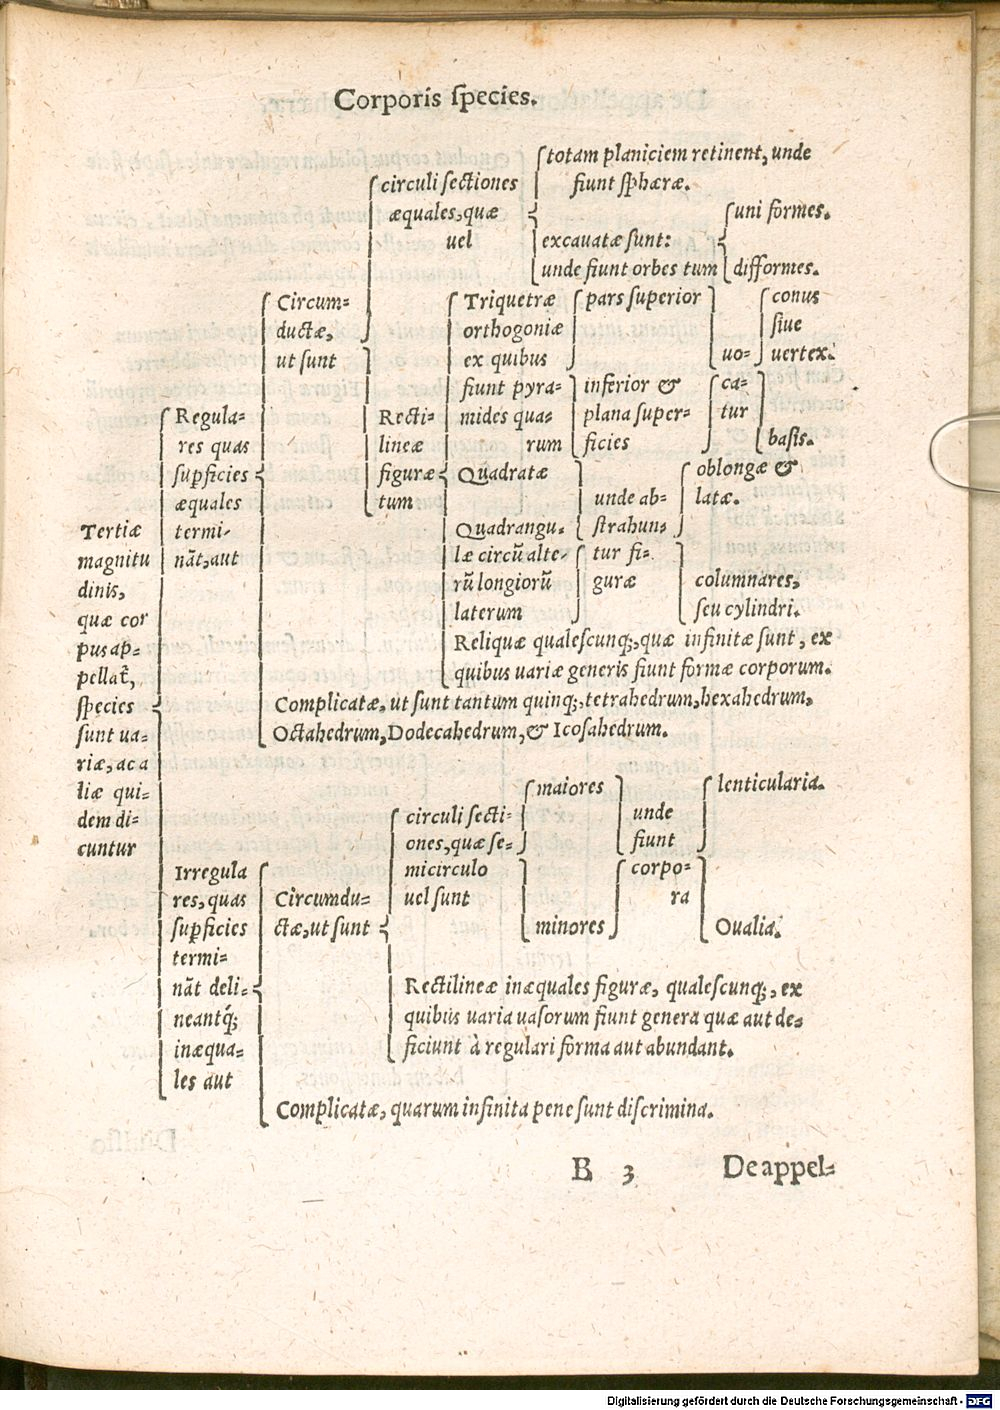 Corporis ſpecies.
Tertiæ
magnitu
dinis,
quæ cor
pus ap-
pellat̃,
ſpecies
ſunt ua-
riæ, ac a
liæ qui-
dem di-
cuntur
Regula-
res quas
ſuꝑficies
æquales
termi-
nãt, aut
Circum-
ductæ,
ut ſunt
circuli ſectiones
æquales, quæ
uel
totam planiciem retinent, unde
fiunt ſphæræ.
excauatæ ſunt:
unde fiunt orbes tum
uni formes.
difformes.
Recti-
lineæ
figuræ
tum
Triquetræ
orthogoniæ
ex quibus
fiunt pyra-
mides qua-
rum
pars ſuperior
inferior &
plana ſuper-
ficies
uo-
ca-
tur
conus
ſiue
uertex.
baſis.
Quadratæ
Quadrangu-
læ circũ alte-
rũ longiorũ
laterum
unde ab-
ſtrahun-
tur fi-
guræ
oblongæ &
latæ.
columnares,
ſeu cylindri.
Reliquæ qualeſcunq;, quæ infinitæ ſunt, ex
quibus uariæ generis fiunt formæ corporum.
Complicatæ, ut ſunt tantum quinq;, tetrahedrum, hexahedrum,
Octahedrum, Dodecahedrum, & Icoſahedrum.
Irregula
res, quas
ſuꝑficies
termi-
nãt deli-
neantq́;
inæqua-
les aut
Circumdu-
ctæ, ut ſunt
circuli ſecti-
ones, quæ ſe-
micirculo
uel ſunt
maiores
minores
unde
fiunt
corpo-
ra
lenticularia.
Oualia.
Rectilineæ inæquales figuræ, qualeſcunq;, ex
quibus uaria uaſorum fiunt genera quæ aut de-
ficiunt à regulari forma aut abundant.
Complicatæ, quarum infinita pene ſunt diſcrimina.
B 3 De appel-
Digitalisierung gefördert durch die Deutsche Forschungsgemeinschaft - DFG